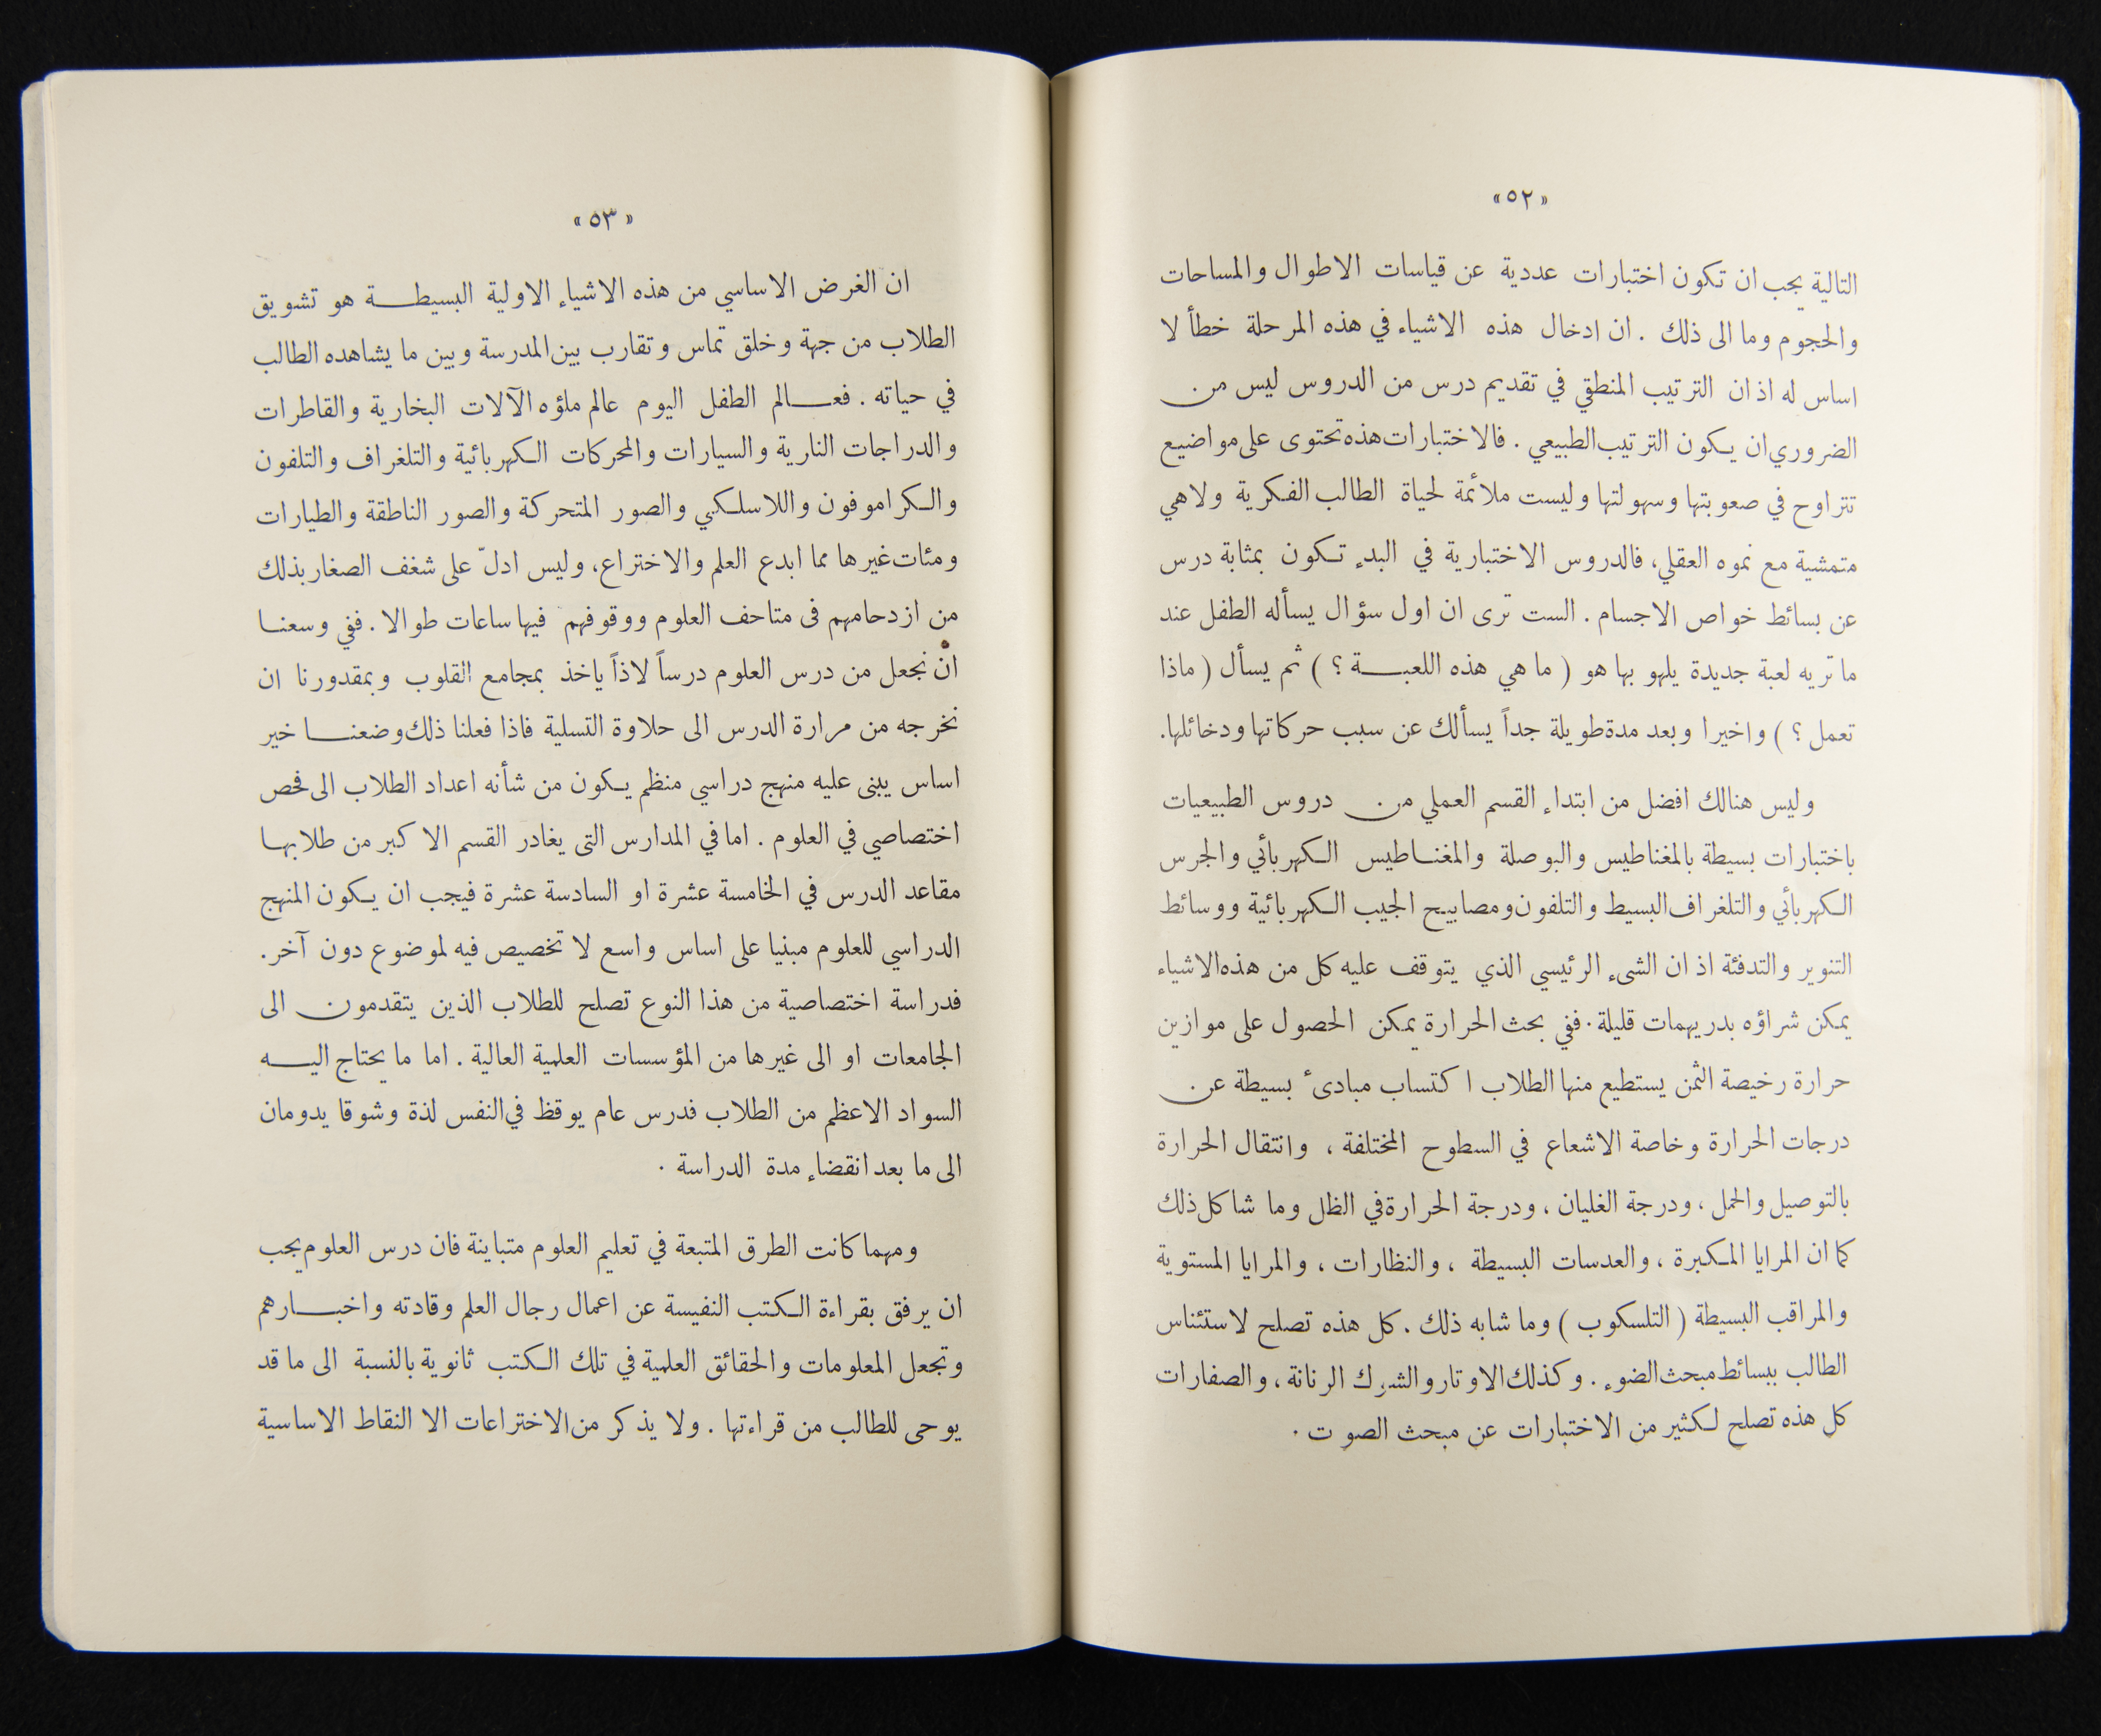 «٥٢»
التالية يجب ان تكون اختبارات عددية عن قياسات الاطوال والمساحات
والحجوم وما الى ذلك . ان ادخال هذه الاشياء في هذه المرحلة خطأ لا
اساس له اذ ان الترتيب المنطقي في تقديم درس من الدروس ليس من
الضروري ان يكون الترتيب الطبيعي . فالاختبارات هذه تحتوى على مواضيع
تتراوح في صعوبتها وسهولتها وليست ملائمة لحياة الطالب الفكرية ولا هي
متمشية مع نموه العقلي، فالدروس الاختبارية في البدء تكون بمثابة درس
عن بسائط خواص الاجسام . الست ترى ان اول سؤال يسأله الطفل عند
ما تريه لعبة جديدة يلهو بها هو ( ما هي هذه اللعبة ؟ ) ثم يسأل ( ماذا
تعمل ؟ ) واخيرا وبعد مدة طويلة جداً يسألك عن سبب حركاتها ودخائلها.
وليس هنالك افضل من ابتداء القسم العملي من دروس الطبيعيات
باختبارات بسيطة بالمغناطيس والبوصلة والمغناطيس الكهربائي والجرس
الكهربائي والتلغراف البسيط والتلفون ومصابيح الجيب الكهربائية ووسائط
التنوير والتدفئة اذ ان الشىء الرئيسي الذي يتوقف عليه كل من هذه الاشياء
يمكن شراؤه بدريهمات قليلة . ففي بحث الحرارة يمكن الحصول على موازين
حرارة رخيصة الثمن يستطيع منها الطلاب اكتساب مبادىء بسيطة عن
درجات الحرارة وخاصة الاشعاع في السطوح المختلفة ، وانتقال الحرارة
بالتوصيل والحمل ، ودرجة الغليان ، ودرجة الحرارة في الظل وما شاكل ذلك
كما ان المرايا المكبرة ، والعدسات البسيطة ، والنظارات ، والمرايا المستوية
والمراقب البسيطة ( التلسكوب ) وما شابه ذلك . كل هذه تصلح لاستئناس
الطالب ببسائط مبحث الضوء . وكذلك الاوتار والشرك الرنانة ، والصفارات
كل هذه تصلح لكثير من الاختبارات عن مبحث الصوت .
«٥٣»
ان الغرض الاساسي من هذه الاشياء الاولية البسيطة هو تشويق
الطلاب من جهة وخلق تماس وتقارب بين المدرسة وبين ما يشاهده الطالب
في حياته . فعالم الطفل اليوم عالم ملؤه الآلات البخارية والقاطرات
والدراجات النارية والسيارات والمحركات الكهربائية والتلغراف والتلفون
والكراموفون واللاسلكي والصور المتحركة والصور الناطقة والطيارات
ومئات غيرها مما ابدع العلم والاختراع، وليس ادلّ على شغف الصغار بذلك
من ازدحامهم فى متاحف العلوم ووقوفهم فيها ساعات طوالا . ففي وسعنا
ان نجعل من درس العلوم درساً لاذاً ياخذ بمجامع القلوب وبمقدورنا ان
نخرجه من مرارة الدرس الى حلاوة التسلية فاذا فعلنا ذلك وضعنا خير
اساس يبنى عليه منهج دراسي منظم يكون من شأنه اعداد الطلاب الى فحص
اختصاصي في العلوم . اما في المدارس التى يغادر القسم الاكبر من طلابها
مقاعد الدرس في الخامسة عشرة او السادسة عشرة فيجب ان يكون المنهج
الدراسي للعلوم مبنيا على اساس واسع لا تخصيص فيه لموضوع دون آخر.
فدراسة اختصاصية من هذا النوع تصلح للطلاب الذين يتقدمون الى
الجامعات او الى غيرها من المؤسسات العلمية العالية . اما ما يحتاج اليه
السواد الاعظم من الطلاب فدرس عام يوقظ في النفس لذة وشوقا يدومان
الى ما بعد انقضاء مدة الدراسة .
ومهما كانت الطرق المتبعة في تعليم العلوم متباينة فان درس العلوم يجب
ان يرفق بقراءة الكتب النفيسة عن اعمال رجال العلم وقادته واخبارهم
وتجعل المعلومات والحقائق العلمية في تلك الكتب ثانوية بالنسبة الى ما قد
يوحى للطالب من قراءتها . ولا يذكر من الاختراعات الا النقاط الاساسية